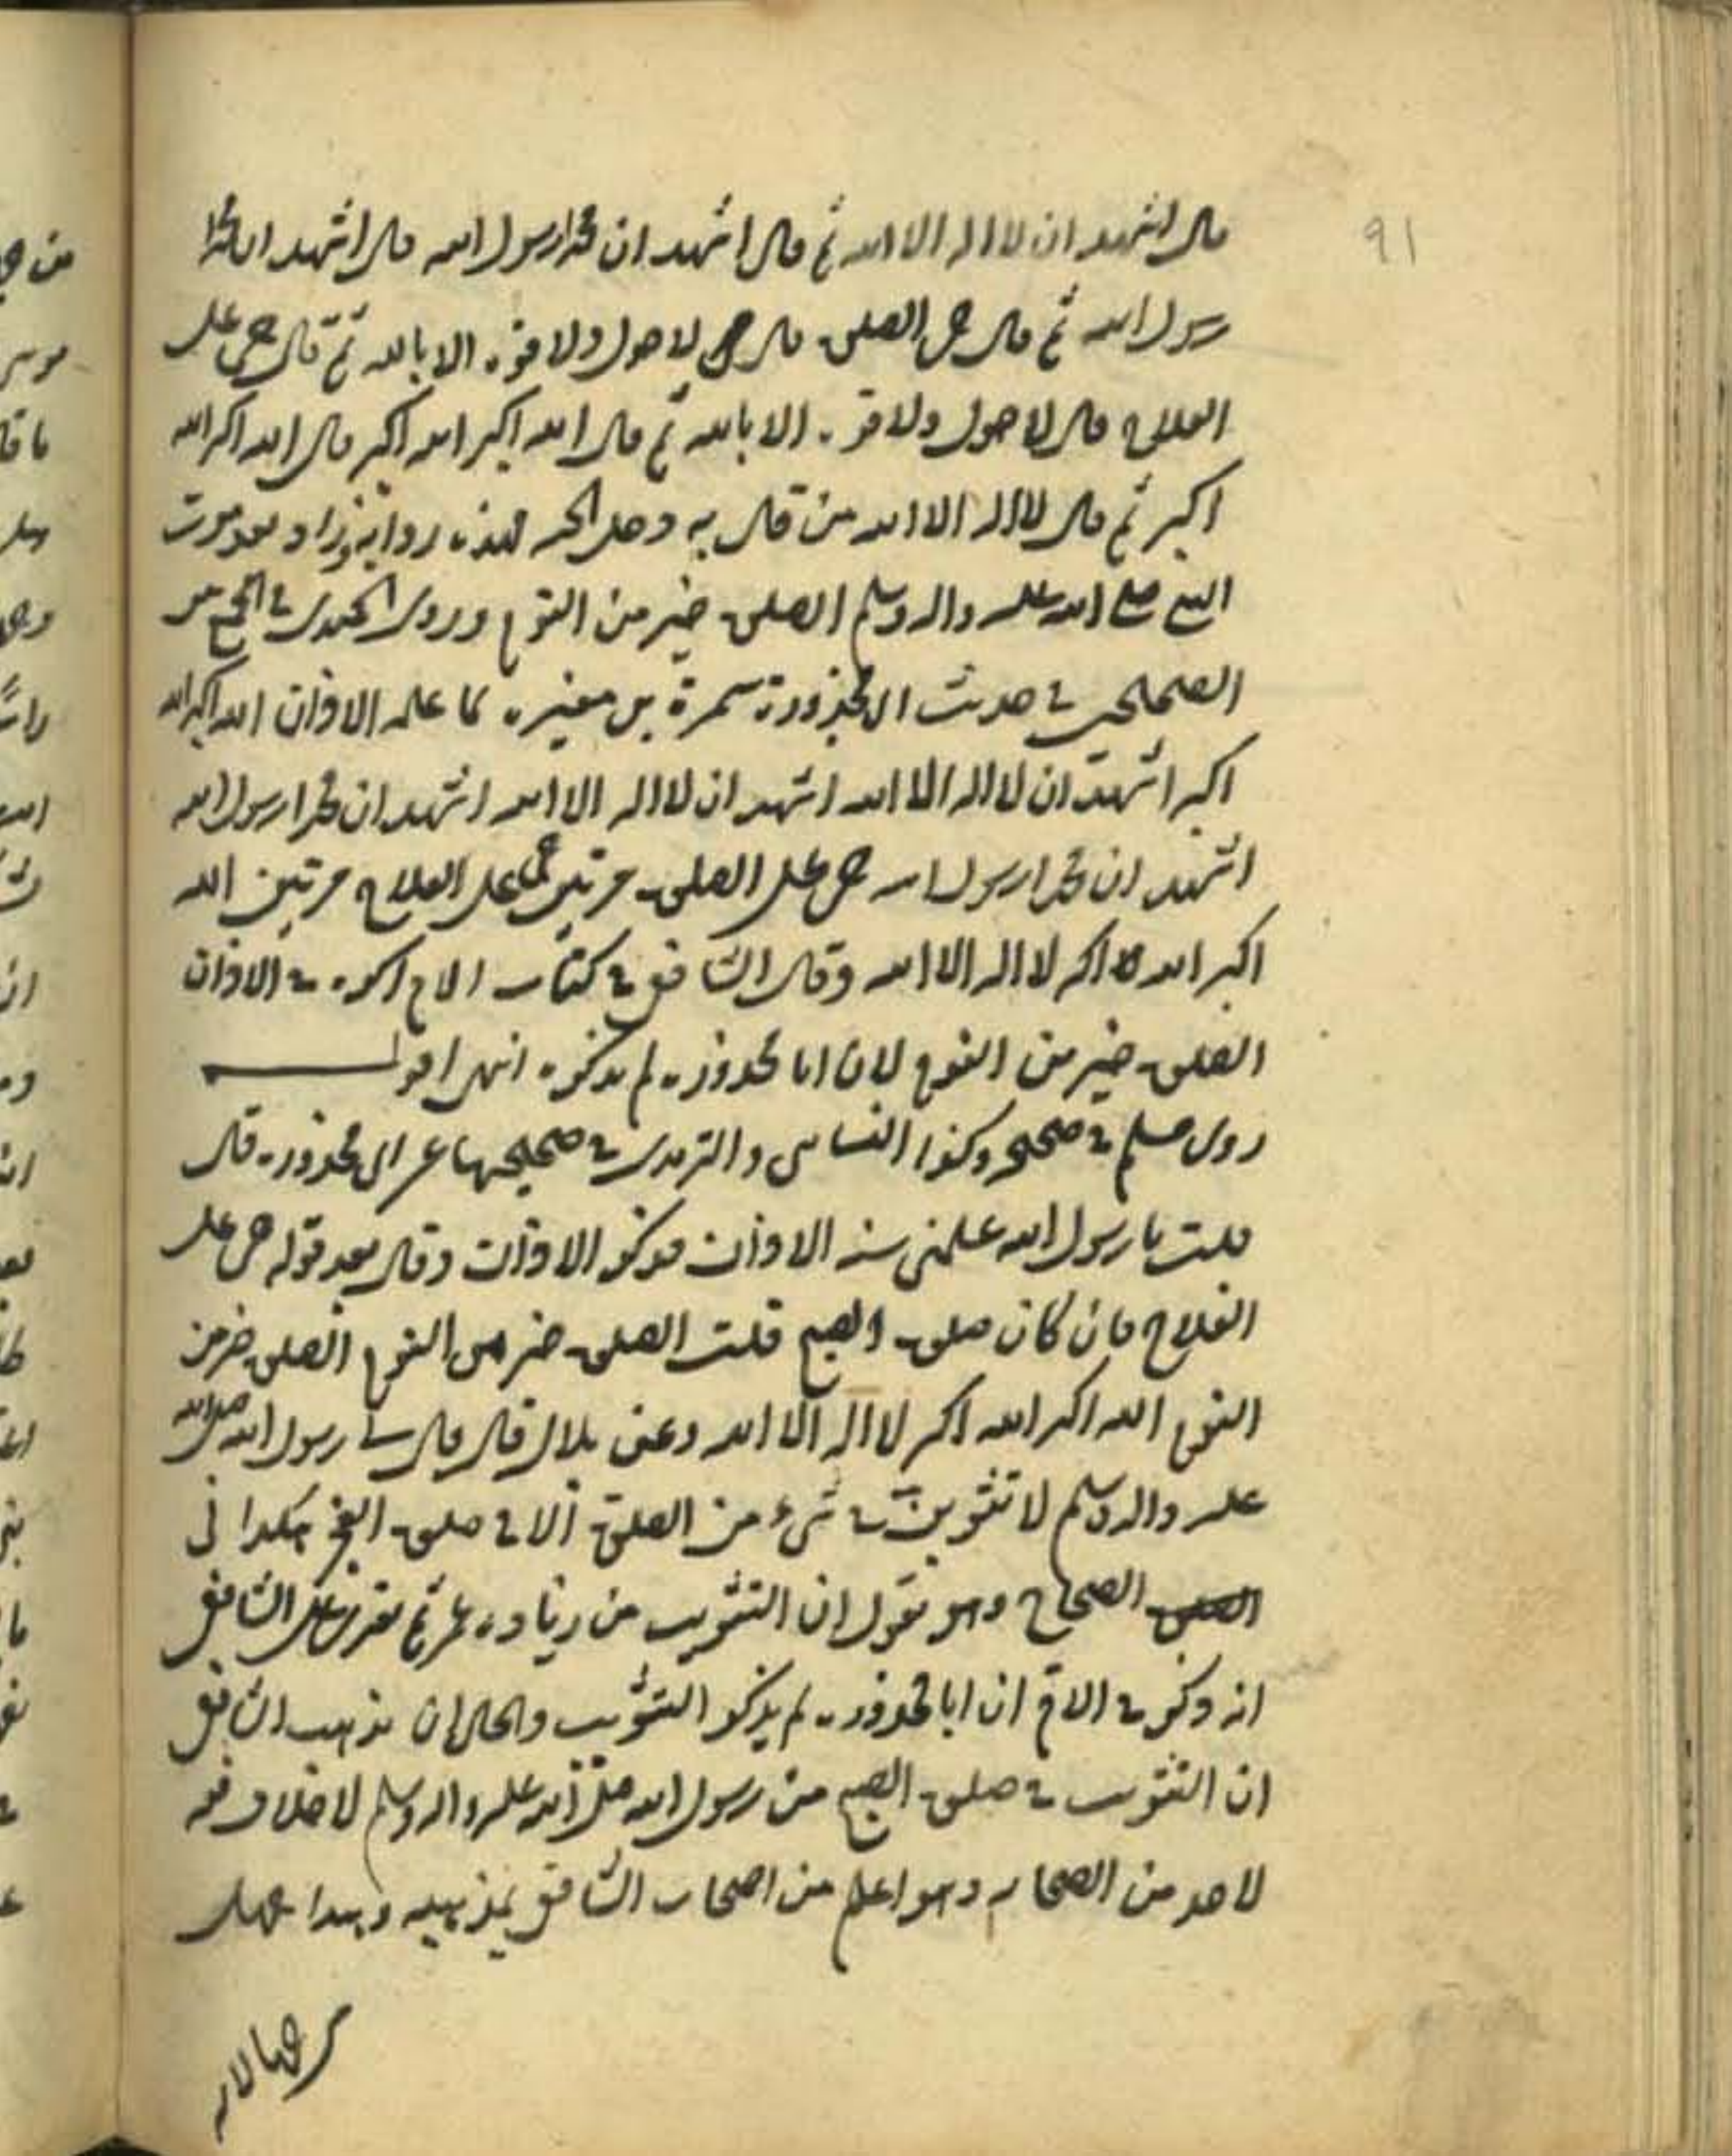 ٩١
قال اشهد ان لا اله الا الله ثم قال اشهد ان محمدا رسول الله قال اشهد ان محمدا
رسول الله ثم قال حي الصلوة قال حي لا حول ولا قوة الا بالله ثم قال حي على
الفلاح قال لا حول ولا قوة الا بالله ثم قال الله اكبر الله اكبر قال الله اكبر الله
اكبر ثم قال لا اله الا الله من قال به دخل الجنة فهذه رواية وزاد بعد موت
النبي صلى الله عليه واله وسلم الصلوة خير من النوم وروى الحميدي في الجمع بين
الصحيحين في حديث ابي محذورة سمرة بن مغيرة لما علمه الاذان الله اكبر الله
اكبر اشهد ان لا اله الا الله اشهد ان لا اله الا الله اشهد ان محمدا رسول الله
اشهد ان محمدا رسول الله حي على الصلوة مرتين حي على الفلاح مرتين الله
اكبر الله اكبر لا اله الا الله وقال الشافعي في كتاب الام اكره في الاذان
الصلوة خير من النوم لان ابا محذورة لم يذكره انتهى اقول
روى مسلم في صحيحه وكذا النسائي والترمذي في صحيحيهما عن ابي محذورة قال
قلت يا رسول الله علمني سنة الاذان فذكر الاذان وقال بعد قوله حي على
الفلاح فان كان صلوة الصبح قلت الصلوة خير من النوم الصلوة خير من
النوم الله اكبر الله اكبر لا اله الا الله وعن بلال قال قال لي رسول الله صلى الله
عليه واله وسلم لا تثوبن في شيء من الصلوة الا في صلوة الفجر هكذا في
الصحاح وهو يقول ان التثويب من زيادة عمر ثم يفتري على الشافعي
انه ذكر في الام ان ابا محذورة لم يذكر التثويب والحال ان مذهب الشافعي
ان التثويب في صلوة الصبح من رسول الله صلى الله عليه واله وسلم لا خلاف فيه
لاحد من الصحابه وهو اعلم من اصحاب الشافعي بمذهبه وهذا جهل